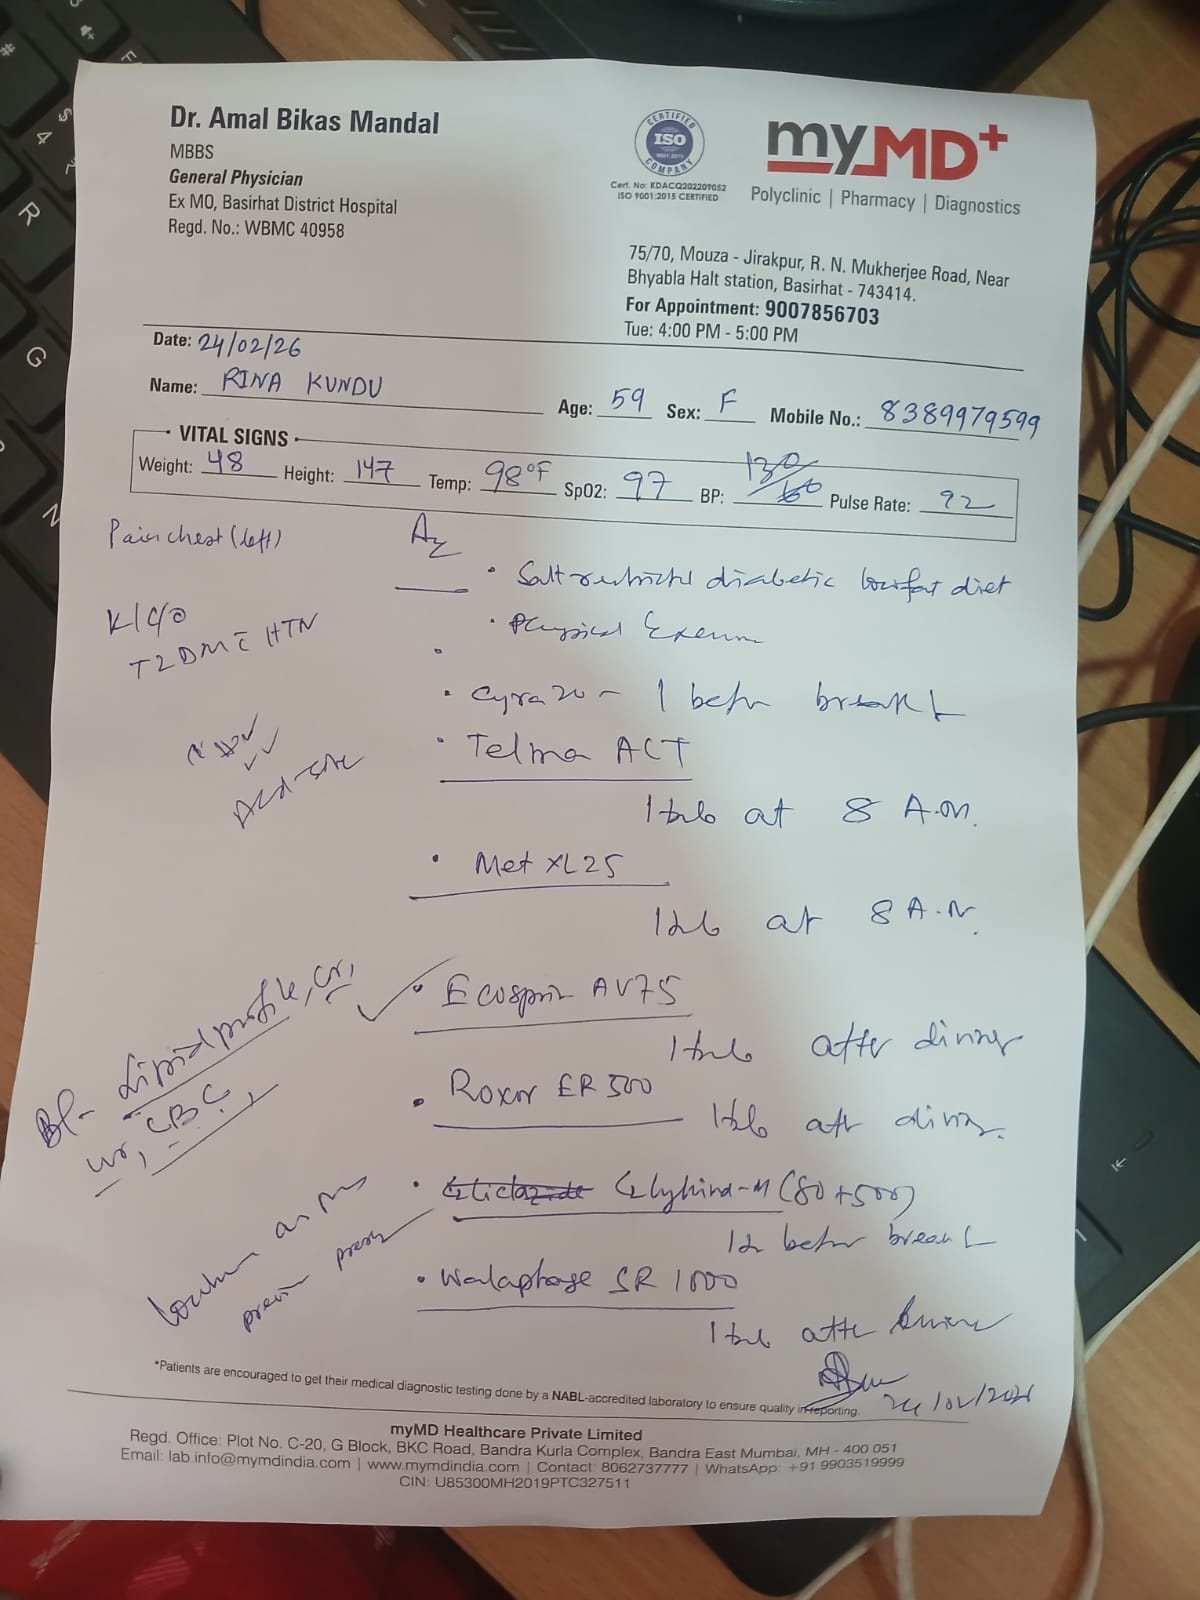 Dr. Amal Bikas Mandal
MBBS
General Physician
Ex MO, Basirhat District Hospital
Regd. No.: WBMC 40958
CERTIFIED
ISO
9001:2015
COMPANY
Cert. No: KDACQ202209052
ISO 9001:2015 CERTIFIED
myMD+
Polyclinic | Pharmacy | Diagnostics
75/70, Mouza - Jirakpur, R. N. Mukherjee Road, Near
Bhyabla Halt station, Basirhat - 743414.
For Appointment: 9007856703
Tue: 4:00 PM - 5:00 PM
Date: 24/02/26
Name: RINA KUNDU
Age: 59 Sex: F Mobile No.: 8389979599
VITAL SIGNS
Weight: 48 Height: 147 Temp: 98°F SpO2: 97 BP: 130/60 Pulse Rate: 92
Pain chest (left)
K/C/O
T2DM c HTN
Salt diabetic low fat diet
Physical
1 befr
Telma ACT
1 tab at 8 A.M.
Met XL 25
1 tab at 8 A.M.
Ecosprin AV 75
1 tab after dinner
ER 500
1 tab aftr dinner
Bl- Lipid profile, Cr,
Ur, CBC,
Gliclazide -M (80+500)
befr
SR 1000
1 tab
*Patients are encouraged to get their medical diagnostic testing done by a NABL-accredited laboratory to ensure quality in reporting.
myMD Healthcare Private Limited
Regd. Office: Plot No. C-20, G Block, BKC Road, Bandra Kurla Complex, Bandra East Mumbai, MH - 400 051
Email: lab.info@mymdindia.com | www.mymdindia.com | Contact: 8062737777 | WhatsApp: +91 9903519999
CIN: U85300MH2019PTC327511